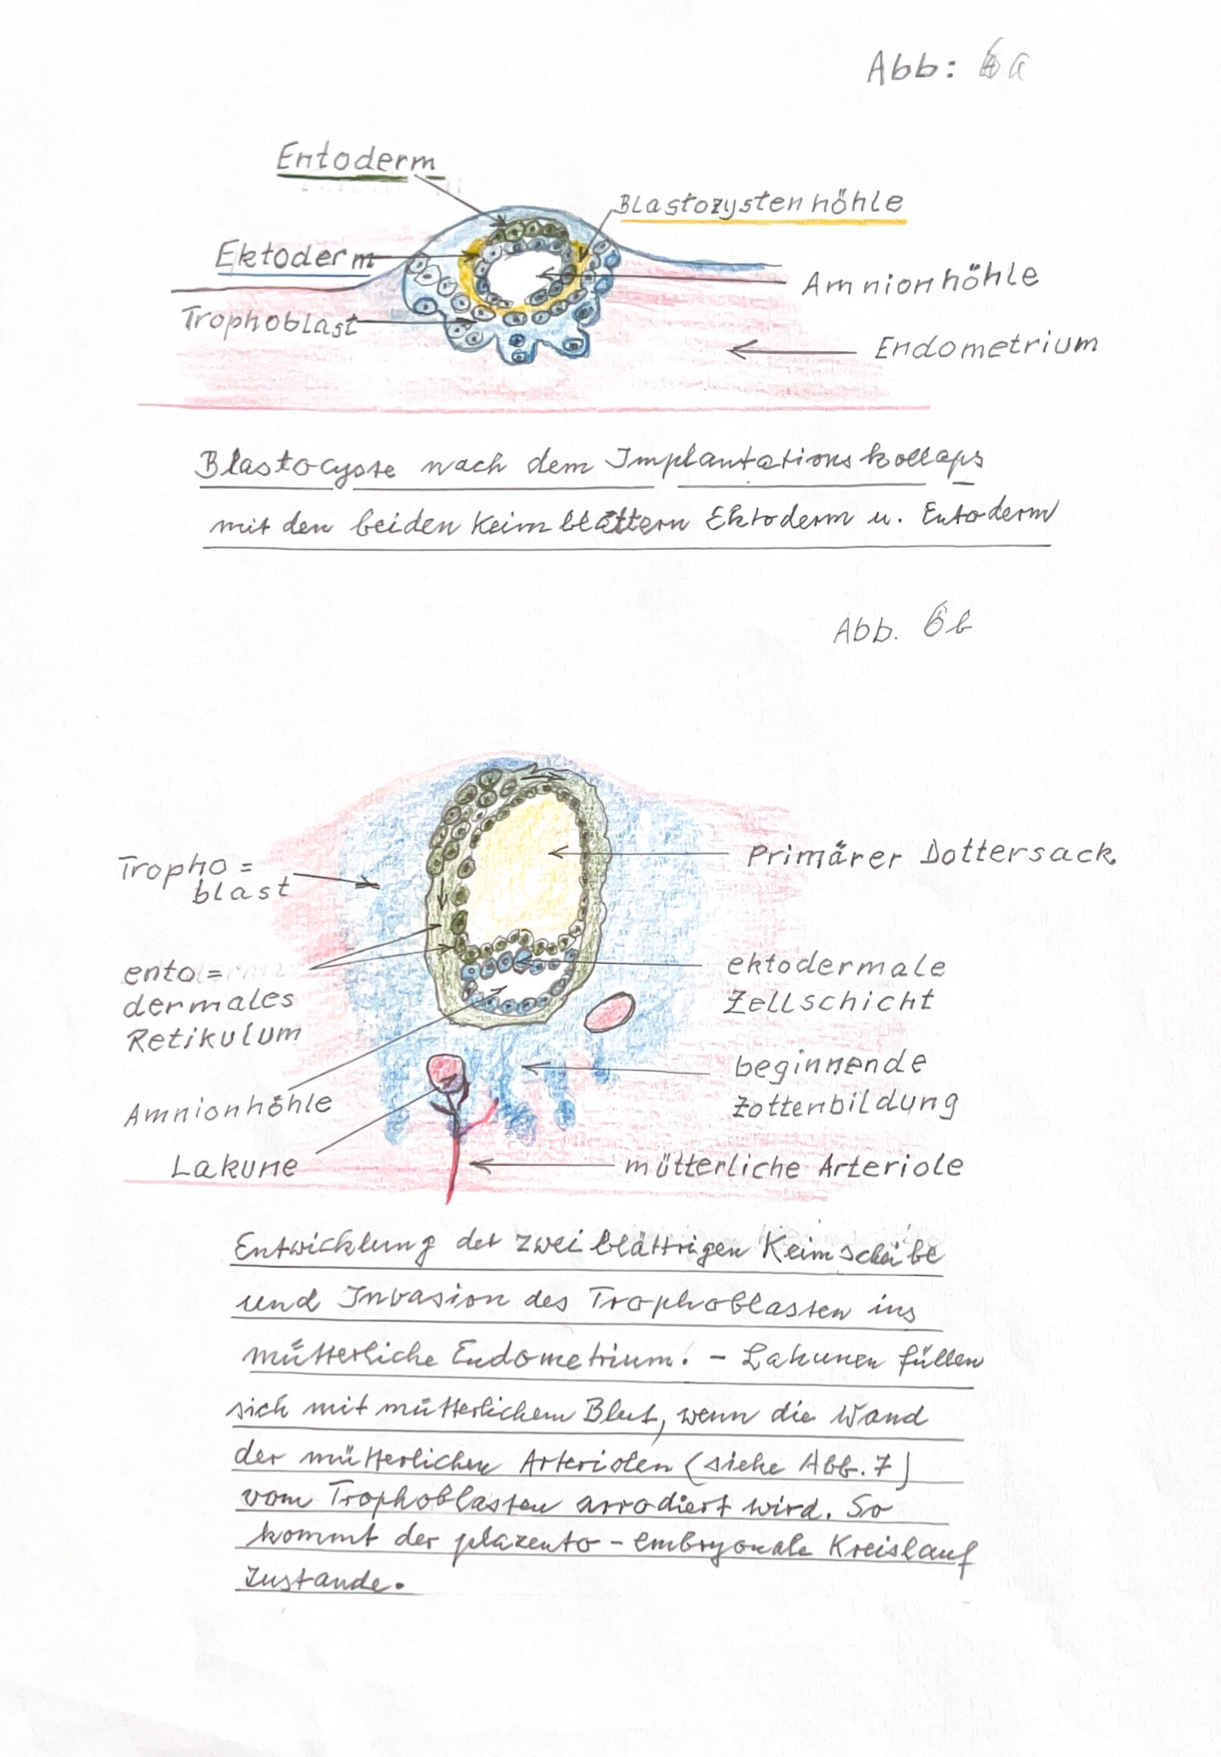 Abb: 6a
Entoderm
Blastozystenhöhle
Ektoderm
Amnionhöhle
Trophoblast
Endometrium
Blastocyste nach dem Implantationskollaps
mit den beiden Keimblättern Ektoderm u. Entoderm
Abb. 6b
Primärer Dottersack
Tropho=
blast
ento=
dermales
Retikulum
ektodermale
Zellschicht
beginnende
Zottenbildung
Amnionhöhle
Lakune
mütterliche Arteriole
Entwicklung der zweiblättrigen Keimscheibe
und Invasion des Trophoblasten ins
mütterliche Endometrium. - Lakunen füllen
sich mit mütterlichem Blut, wenn die Wand
der mütterlichen Arteriolen (siehe Abb. 7)
vom Trophoblasten arrodiert wird. So
kommt der plazento-embryonale Kreislauf
zustande.